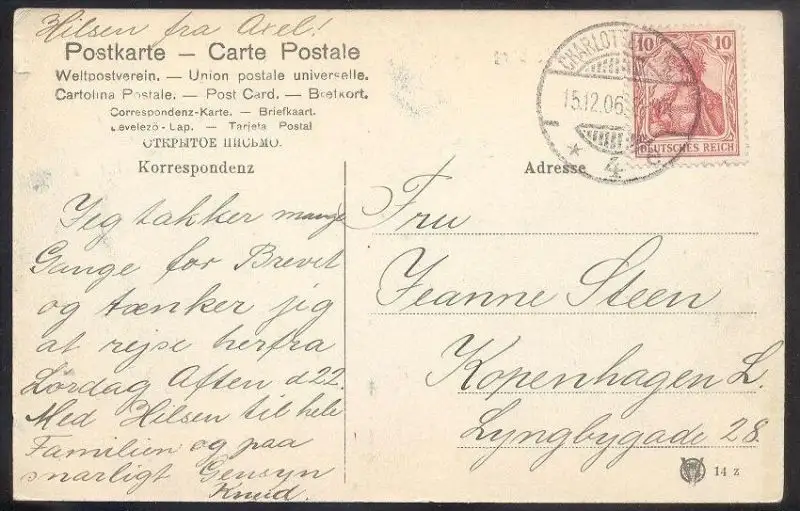 Hilsen fra Axel!
Postkarte — Carte Postale
Weltpostverein. — Union postale universelle.
Cartolina Postale. — Post Card. — Brefkort.
Correspondenz-Karte. — Briefkaart.
Levelező-Lap. — Tarjeta Postal
ОТКРЫТОЕ ПИСЬМО.
Korrespondenz
Jeg takker mange
Gange for Brevet
og tænker jeg
at rejse herfra
Lørdag Aften d 22.
Med Hilsen til hele
Familien og paa
snarligt Gensyn
Knud.
Adresse
Fru
Jeanne Steen
Kopenhagen L.
Lyngbygade 28.
15.12.06
* 4 c.
10 10
DEUTSCHES REICH
14 z